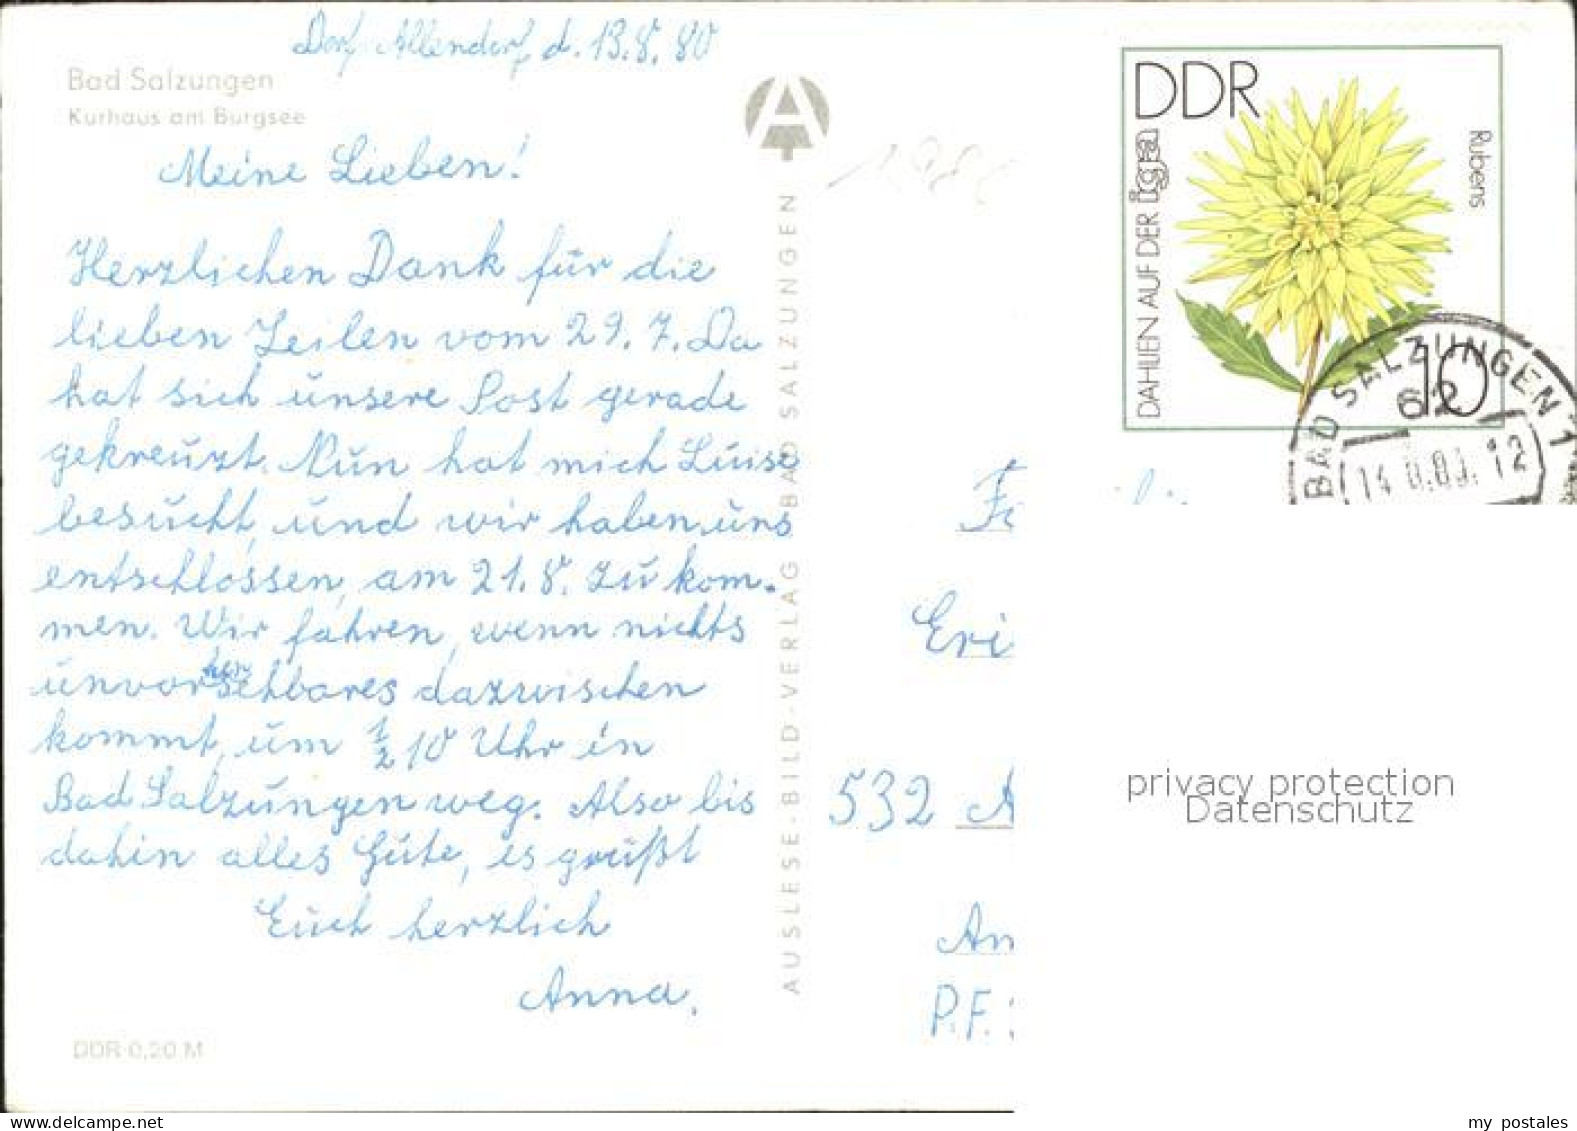 Dorf Allendorf, d. 13.8.80
Bad Salzungen
Kurhaus am Burgsee
Meine Lieben!
Herzlichen Dank für die
lieben Zeilen vom 29.7. Da
hat sich unsere Post gerade
gekreuzt. Nun hat mich Luise
besucht, und wir haben uns
entschlossen, am 21.8. zu kom-
men. Wir fahren, wenn nichts
unvorhersehbares dazwischen
kommt, um ½10 Uhr in
Bad Salzungen weg. Also bis
dahin alles Gute, es grüßt
Euch herzlich
Anna.
DDR 0,20 M
AUSLESE-BILD-VERLAG BAD SALZUNGEN
A
DDR
DAHLIEN AUF DER iga
Rubens
10
BAD SALZUNGEN 1
62
Eri
532 A
An
P.F.
privacy protection
Datenschutz
my postales